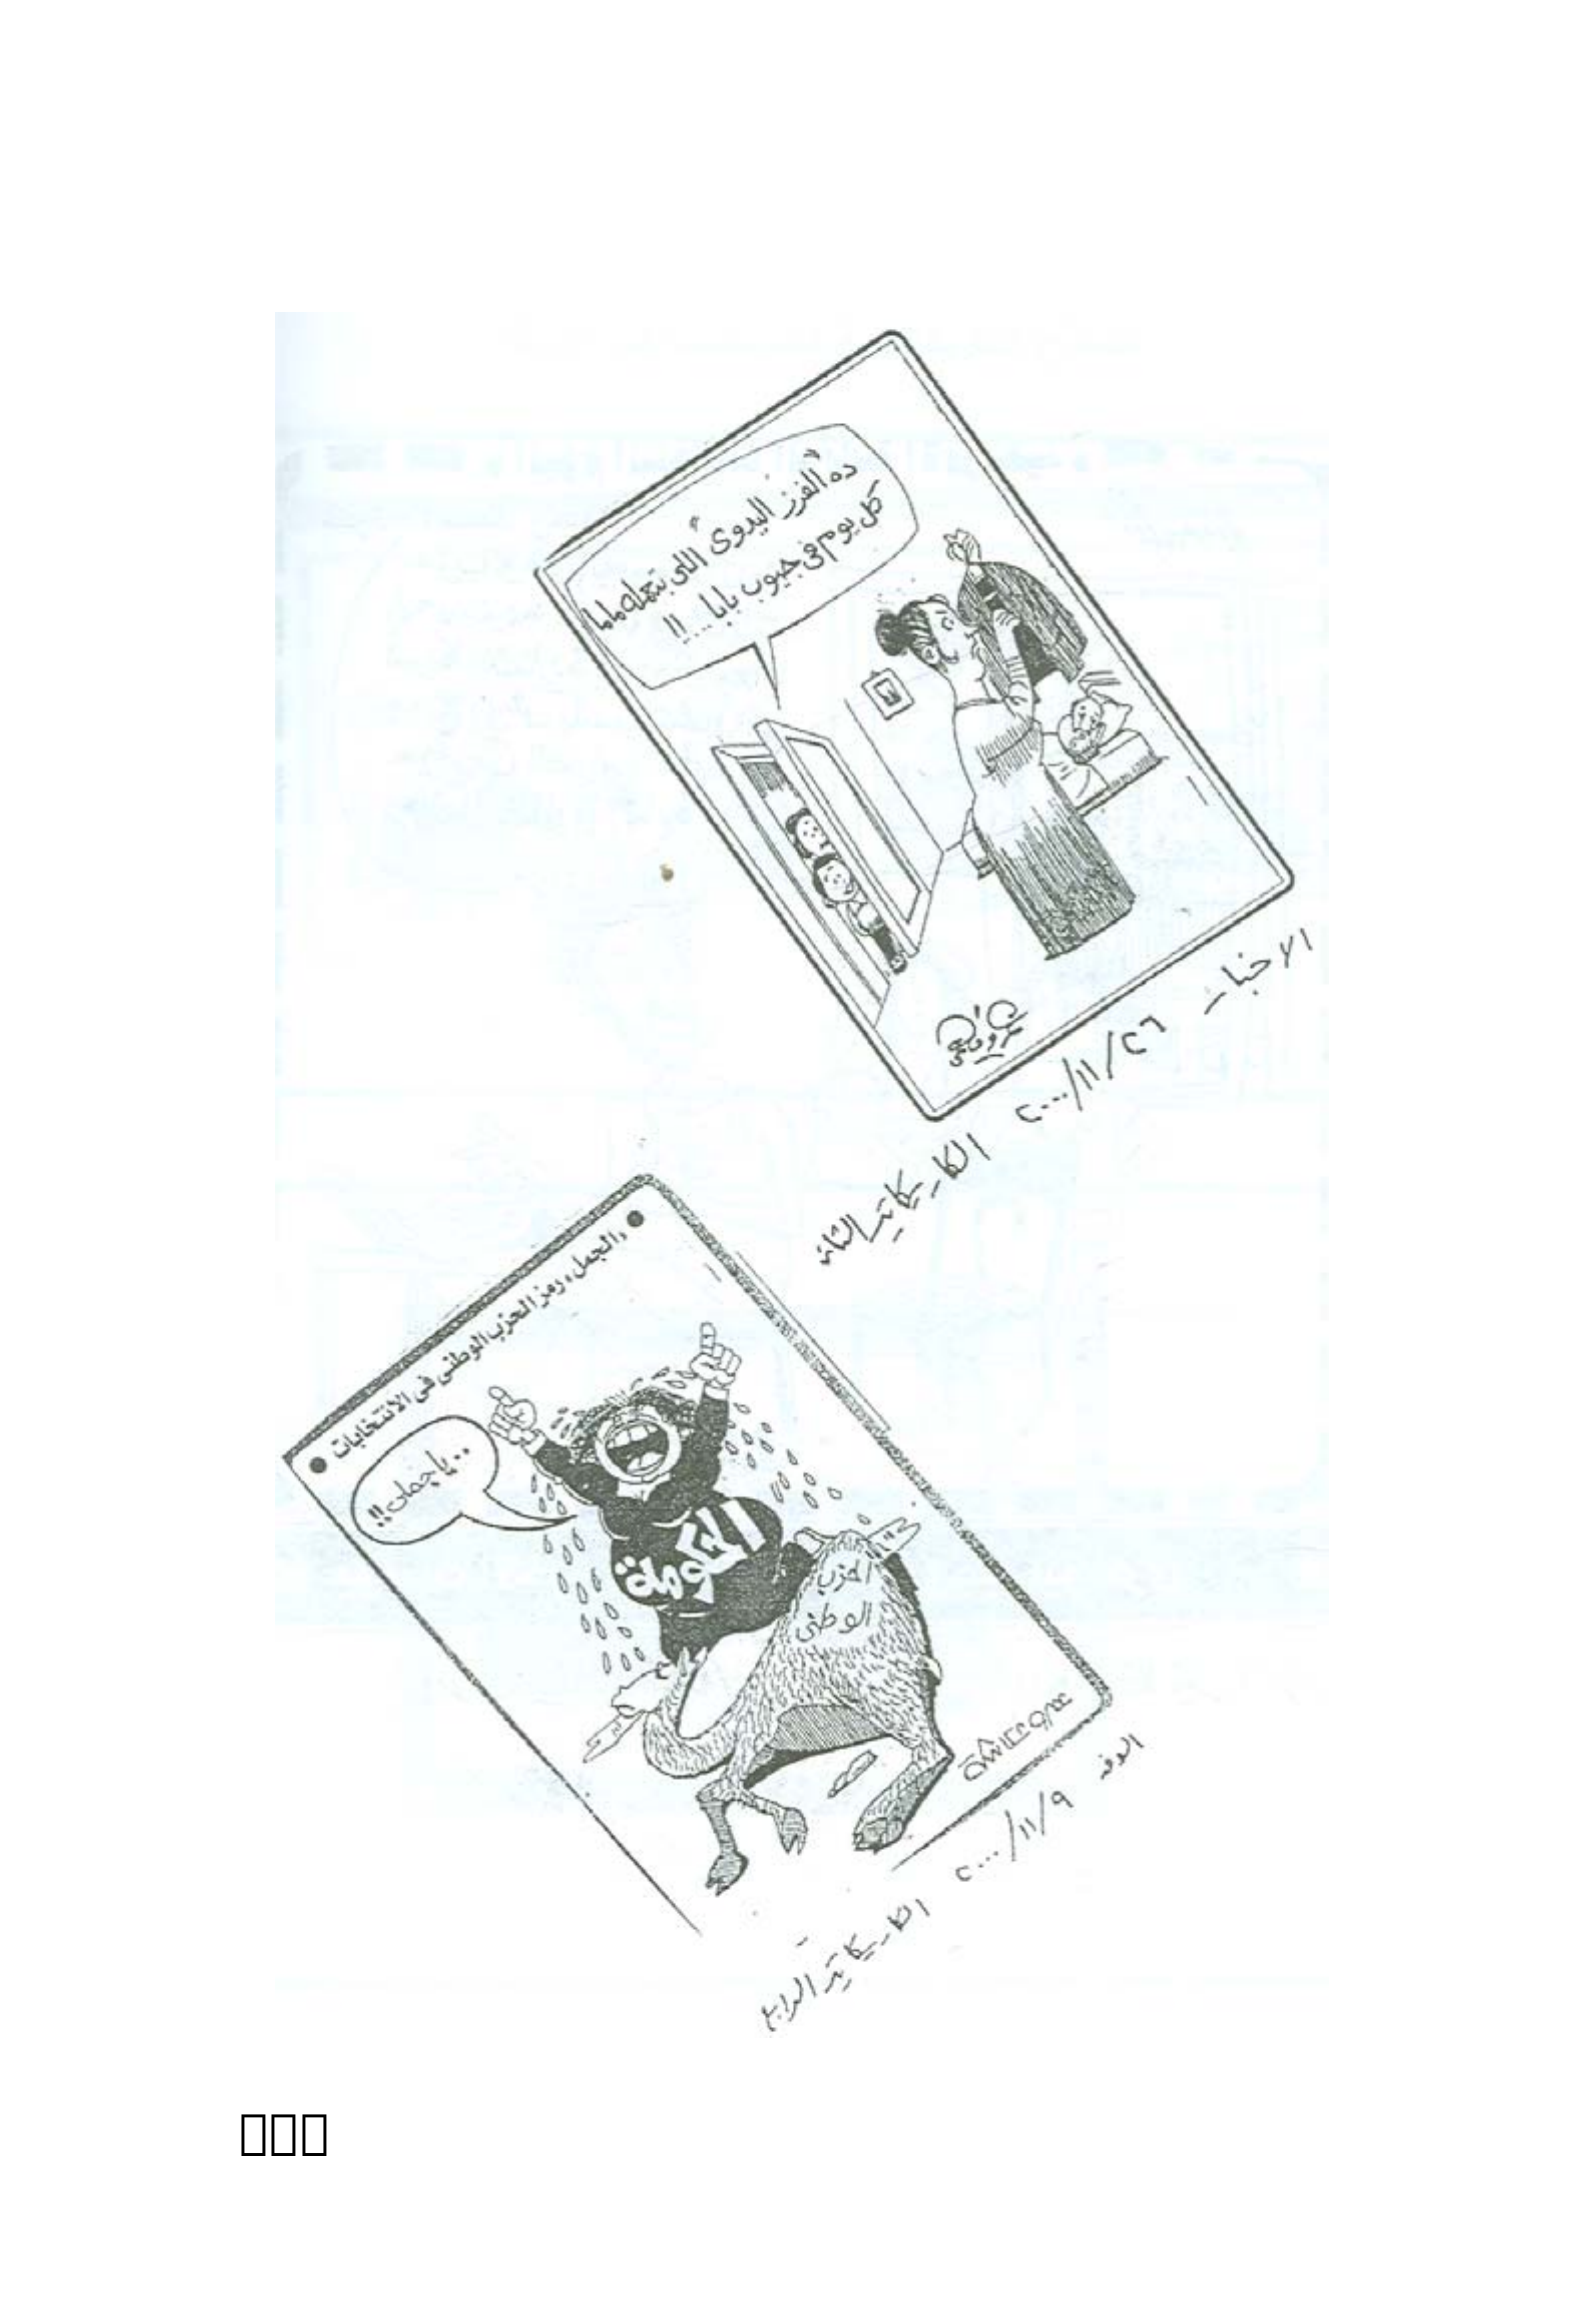 ده "الفرز اليدوى" اللى بتعمله ماما
كل يوم فى جيوب بابا ... !!
عمرو فهمى
الاخبار ٢٦/١١/٢٠٠٠
الكاريكاتير الثالث
● «الجمل» رمز الحزب الوطنى فى الانتخابات ●
.. يا جملى!!
الحكومة
الحزب
الوطنى
عمرو عكاشة
الوفد ٩/١١/٢٠٠٠
الكاريكاتير الرابع